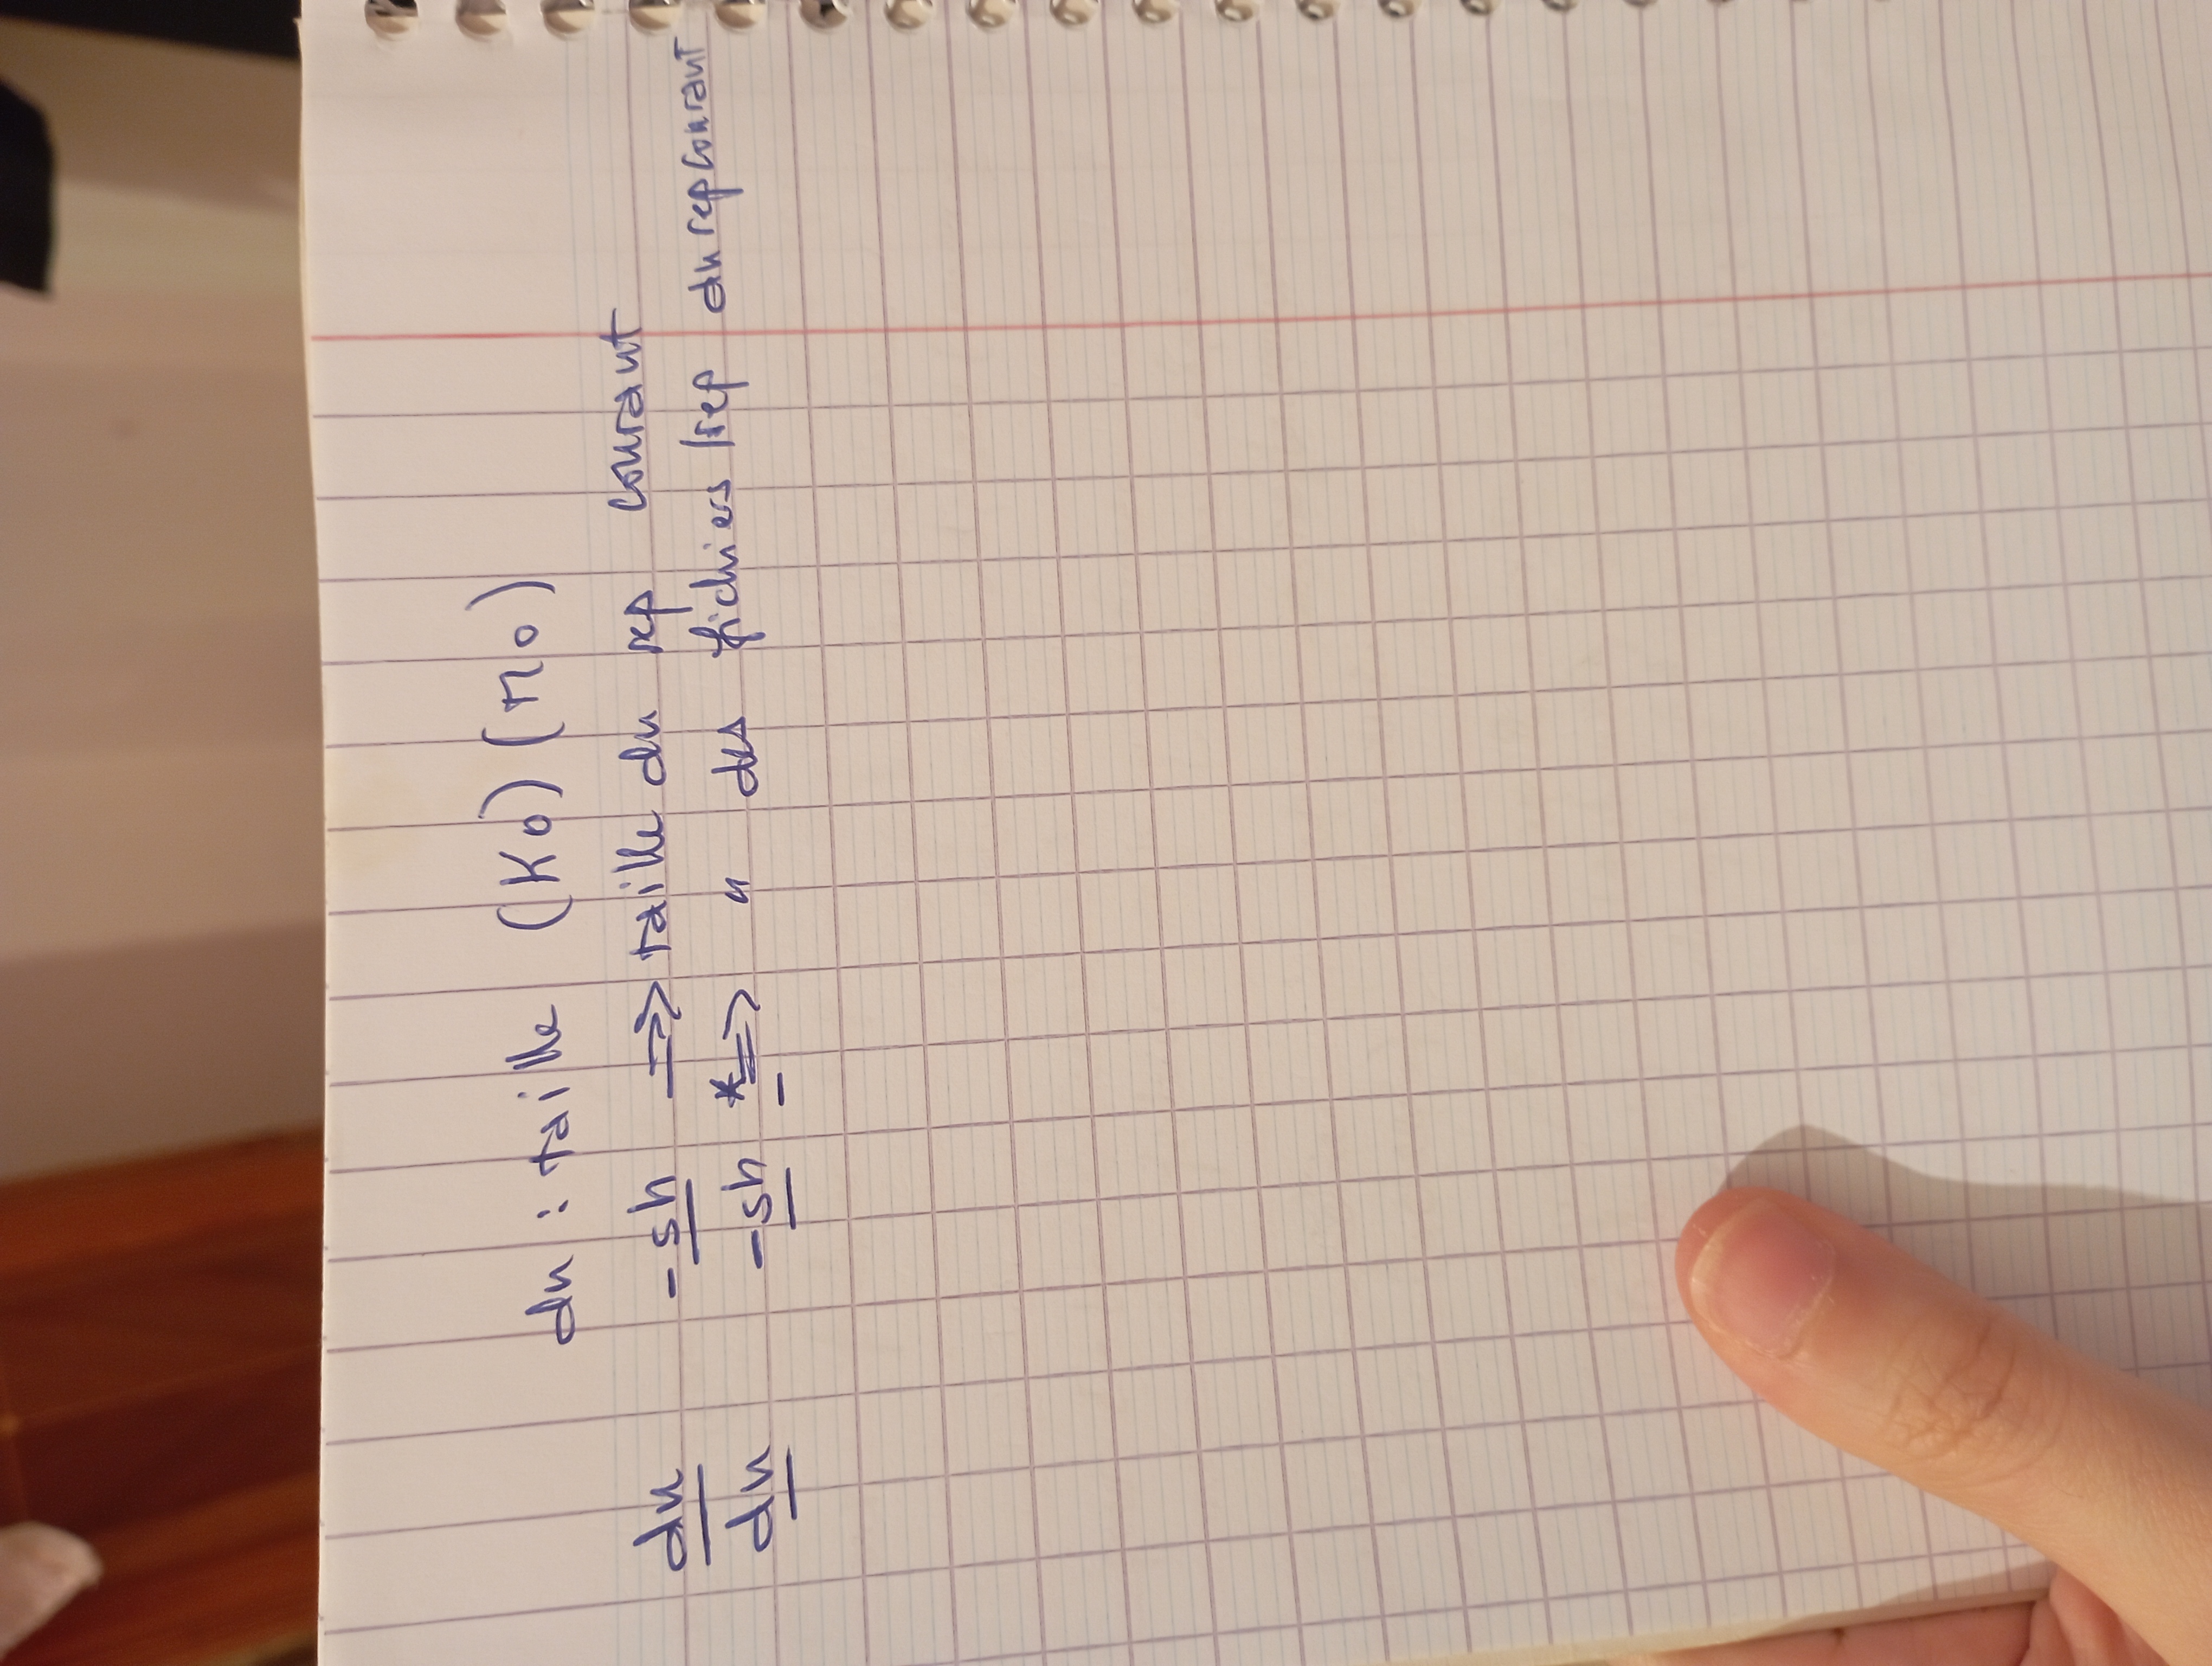 du : taille (Ko) (Mo)
du -sh => taille du rep courant
du -sh * => " des fichiers/rep du rep courant